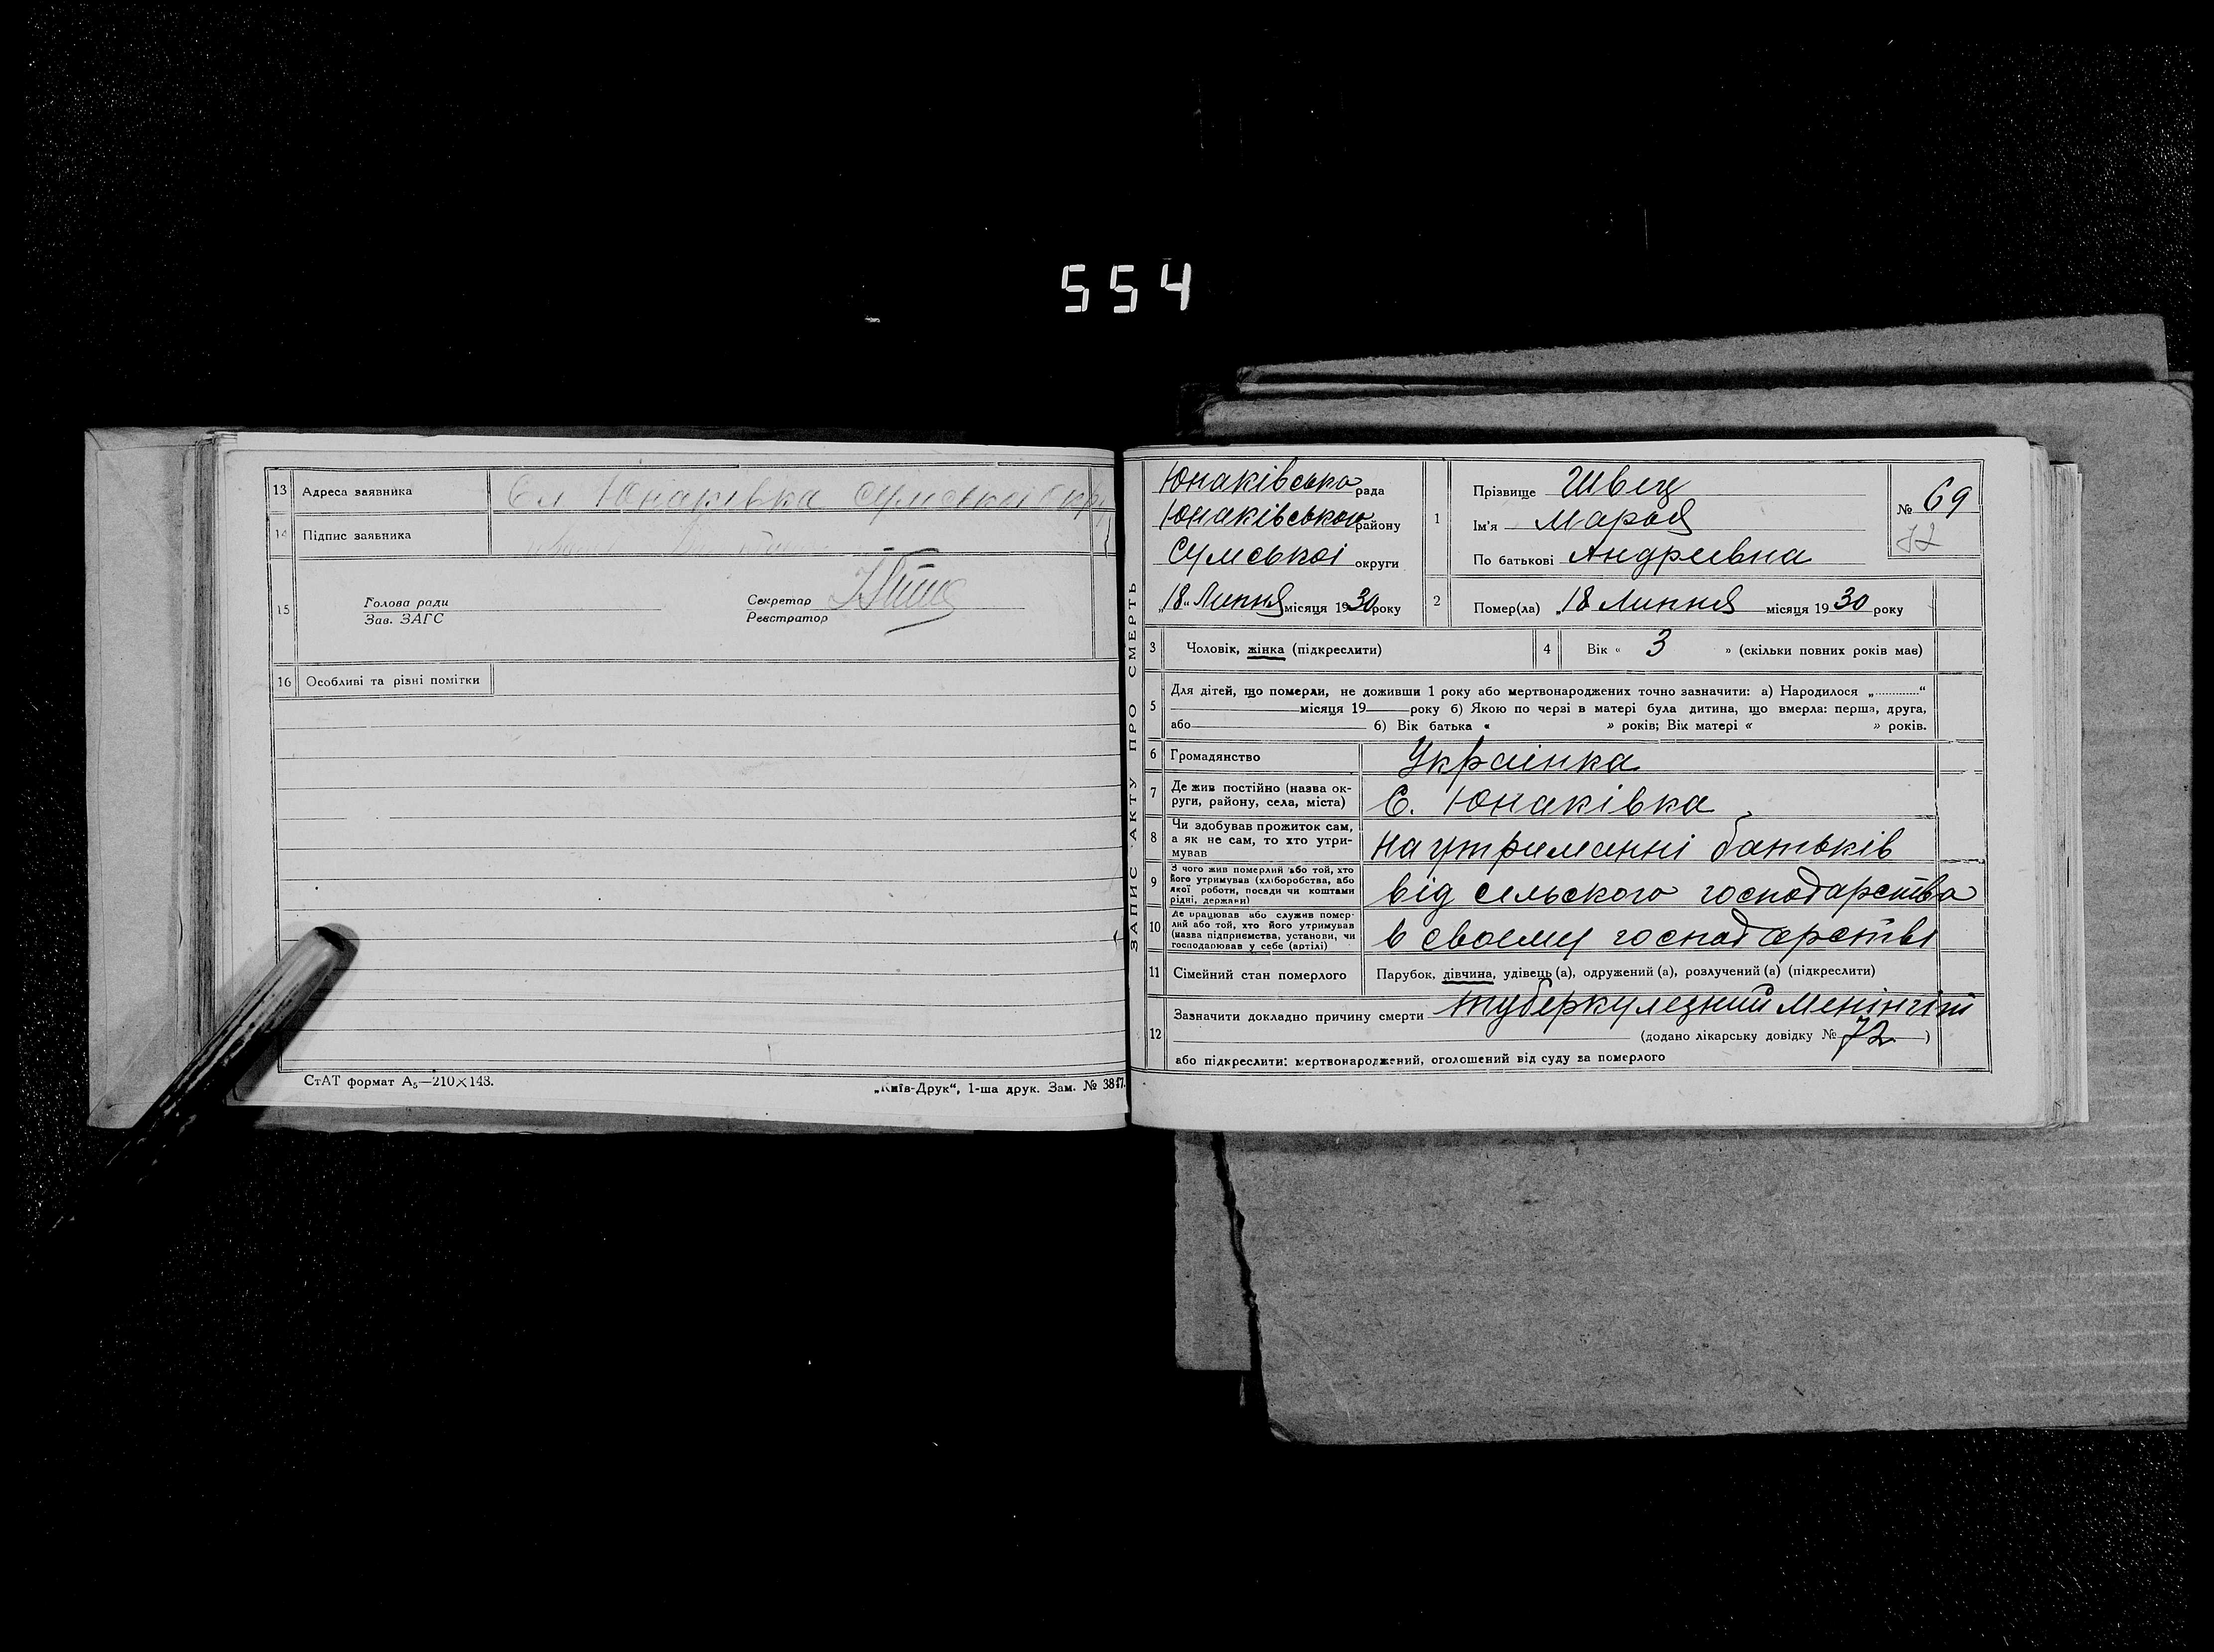 554
13 Адреса заявника Сл Юнаківка Сумської Окру
14 Підпис заявника
15 Голова ради
Зав. ЗАГС
Секретар
Реєстратор
16 Особливі та різні помітки
СтАТ формат А₅—210×148.
„Київ-Друк“, 1-ша друк. Зам. № 3817.
ЗАПИС АКТУ ПРО СМЕРТЬ
Юнаківська рада
Юнаківського району
Сумської округи
„18“ Липня місяця 1930 року
1 Прізвище Швец
Ім'я Марья
По батькові Андреевна
№ 69
72
2 Помер(ла) „18 Липня місяця 1930 року
3 Чоловік, жінка (підкреслити)
4 Вік « 3 » (скільки повних років має)
5 Для дітей, що померли, не доживши 1 року або мертвонароджених точно зазначити: а) Народилося „............“
місяця 19 року б) Якою по черзі в матері була дитина, що вмерла: перша, друга,
або б) Вік батька « » років; Вік матері « » років.
6 Громадянство Українка
7 Де жив постійно (назва округи, району, села, міста) С. Юнаківка
8 Чи здобував прожиток сам,
а як не сам, то хто утри-
мував на утриманні батьків
9 З чого жив померлий або той, хто
його утримував (хліборобства, або
якої роботи, посади чи коштами
рідні, держави) від сельского господарства
10 Де працював або служив помер-
лий або той, хто його утримував
(назва підприємства, установи, чи
господарював у себе (артілі) в своему господарстві
11 Сімейний стан померлого Парубок, дівчина, удівець (а), одружений (а), розлучений (а) (підкреслити)
12 Зазначити докладно причину смерти туберкулезний Менінгіт
(додано лікарську довідку № 72)
або підкреслити: мертвонароджений, оголошений від суду за померлого